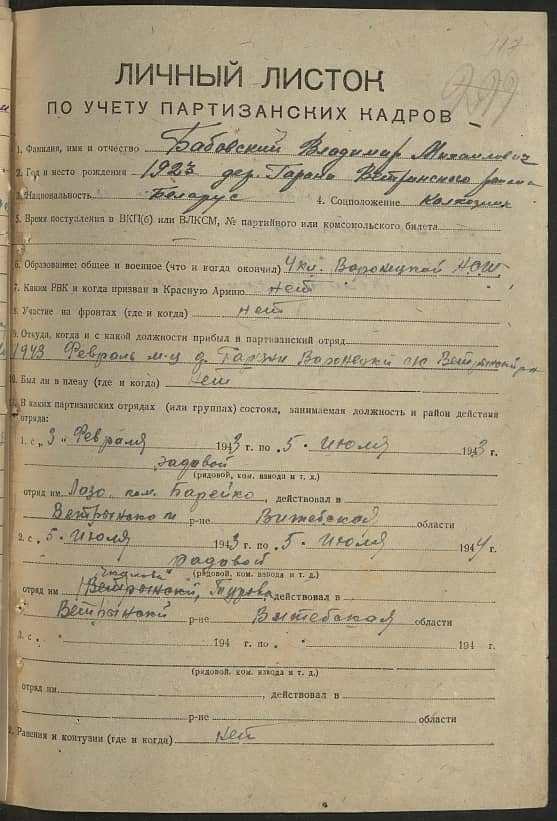 112
299
ЛИЧНЫЙ ЛИСТОК
ПО УЧЕТУ ПАРТИЗАНСКИХ КАДРОВ
1. Фамилия, имя и отчество Бабовский Владимир Михайлович
2. Год и место рождения 1923 дер. Ветринского района
3. Национальность Беларус 4. Соцположение Колхозник
5. Время поступления в ВКП(б) или ВЛКСМ, № партийного или комсомольского билета
6. Образование: общее и военное (что и когда окончил) 4 кл. Воронецкой НСШ
7. Каким РВК и когда призван в Красную Армию нет
8. Участие на фронтах (где и когда) нет
9. Откуда, когда и с какой должности прибыл в партизанский отряд
1943 Февраль м-ц д. Воронецки с/с
10. Был ли в плену (где и когда) нет
11. В каких партизанских отрядах (или группах) состоял, занимаемая должность и район действия
отряда:
1. с „3„ Февраля 1943 г. по „5„ Июля 1943 г.
Радовой
(рядовой, ком. взвода и т. д.)
отряд им. Лазо, ком. Барейко, действовал в
р-не Витебской области
2. с „5„ Июля 1943 г. по „5„ Июля 1944 г.
Радовой
(рядовой, ком. взвода и т. д.)
"Чкалова"
отряд им. действовал в
Ветрынский р-не Витебская области
3. с „ „ 194 г. по „ „ 194 г.
(рядовой, ком. взвода и т. д.)
отряд им. , действовал в
р-не области
12. Ранения и контузии (где и когда) нет